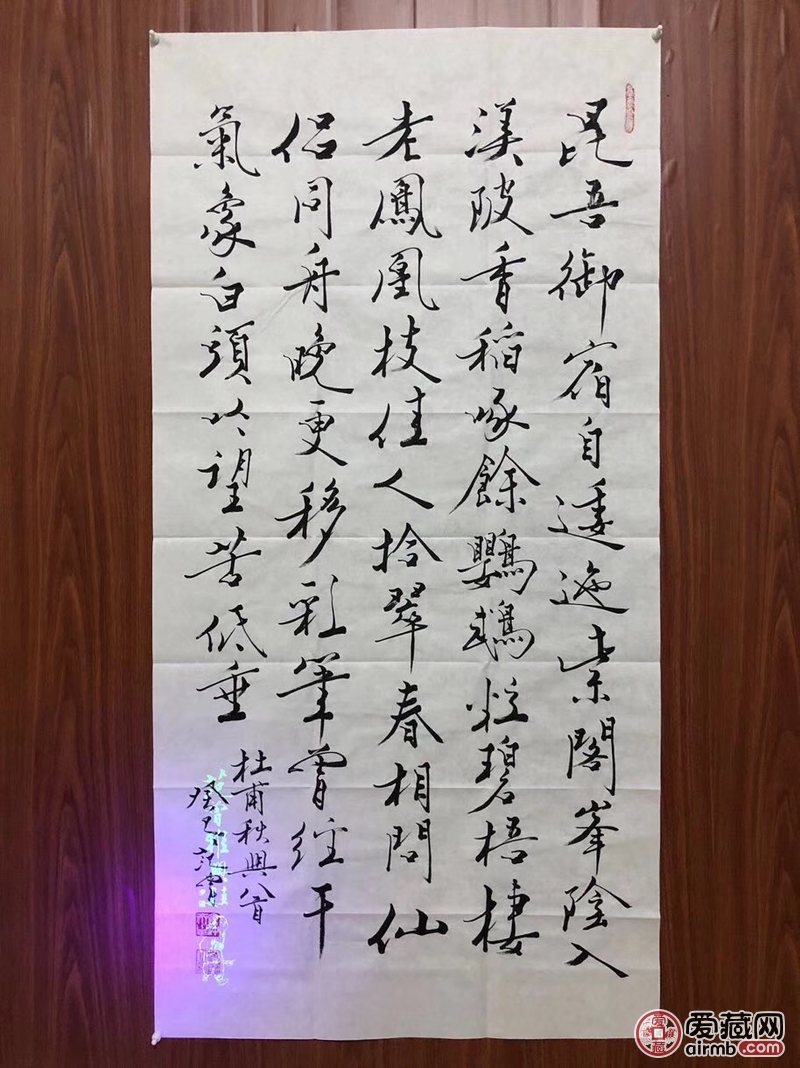 昆吾御宿自逶迤紫閣峯陰入
渼陂香稻啄餘鸚鵡粒碧梧棲
老鳳凰枝佳人拾翠春相問仙
侣同舟晚更移彩筆曾經干
氣象白頭吟望苦低垂
杜甫秋興八首
癸巳
爱藏网
airmb.com